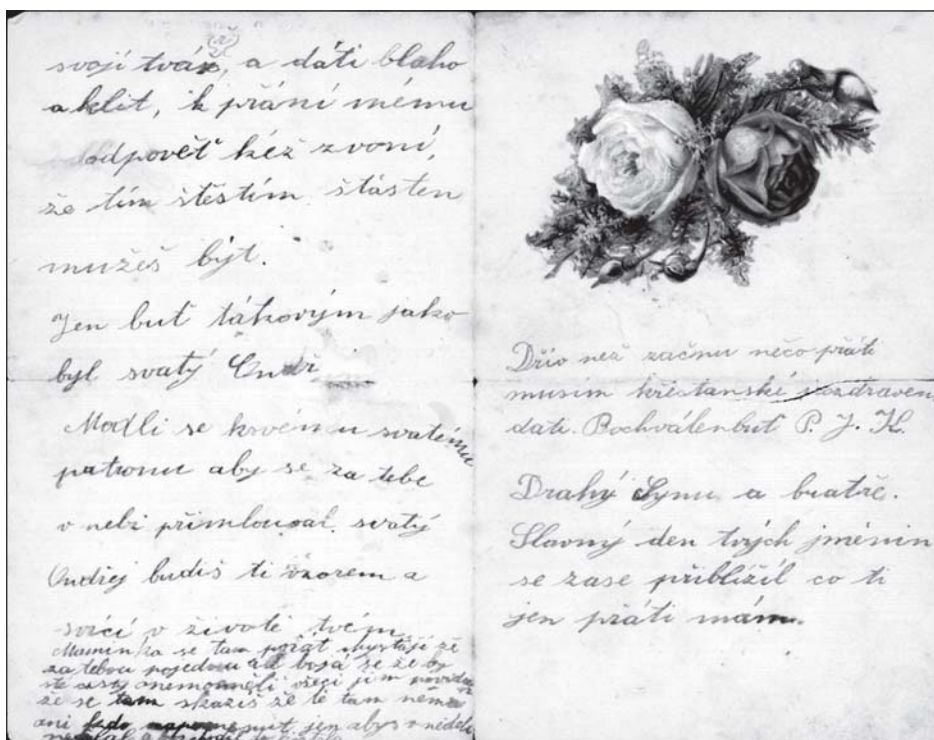 svojí tvář, a dáti blaho
a klit, k přání mému
odpovět kéž zvoní,
že tím štěstím štásten
mužéš být.
Jen buť tákovým jako
byl svatý Ondř
Modli se ksvému svatému
patronu aby se za tebe
v nebi přimlouval svatý
Ondřej budiš ti vzorem a
svící v životě tvém
Maminka se tam pořát chystáji že
za tebou pojedou ale bojá se že by
cesty onemocněli
že se tam že tě tam
ani jen abys v neděli
Dřív než začnu něco přáti
musím křéstanské pozdraven
dati. Bochválenbuť P. J. K.
Drahý Synu a bratře.
Slavný den tvých jménin
se zase přiblížil co ti
jen přáti mám.